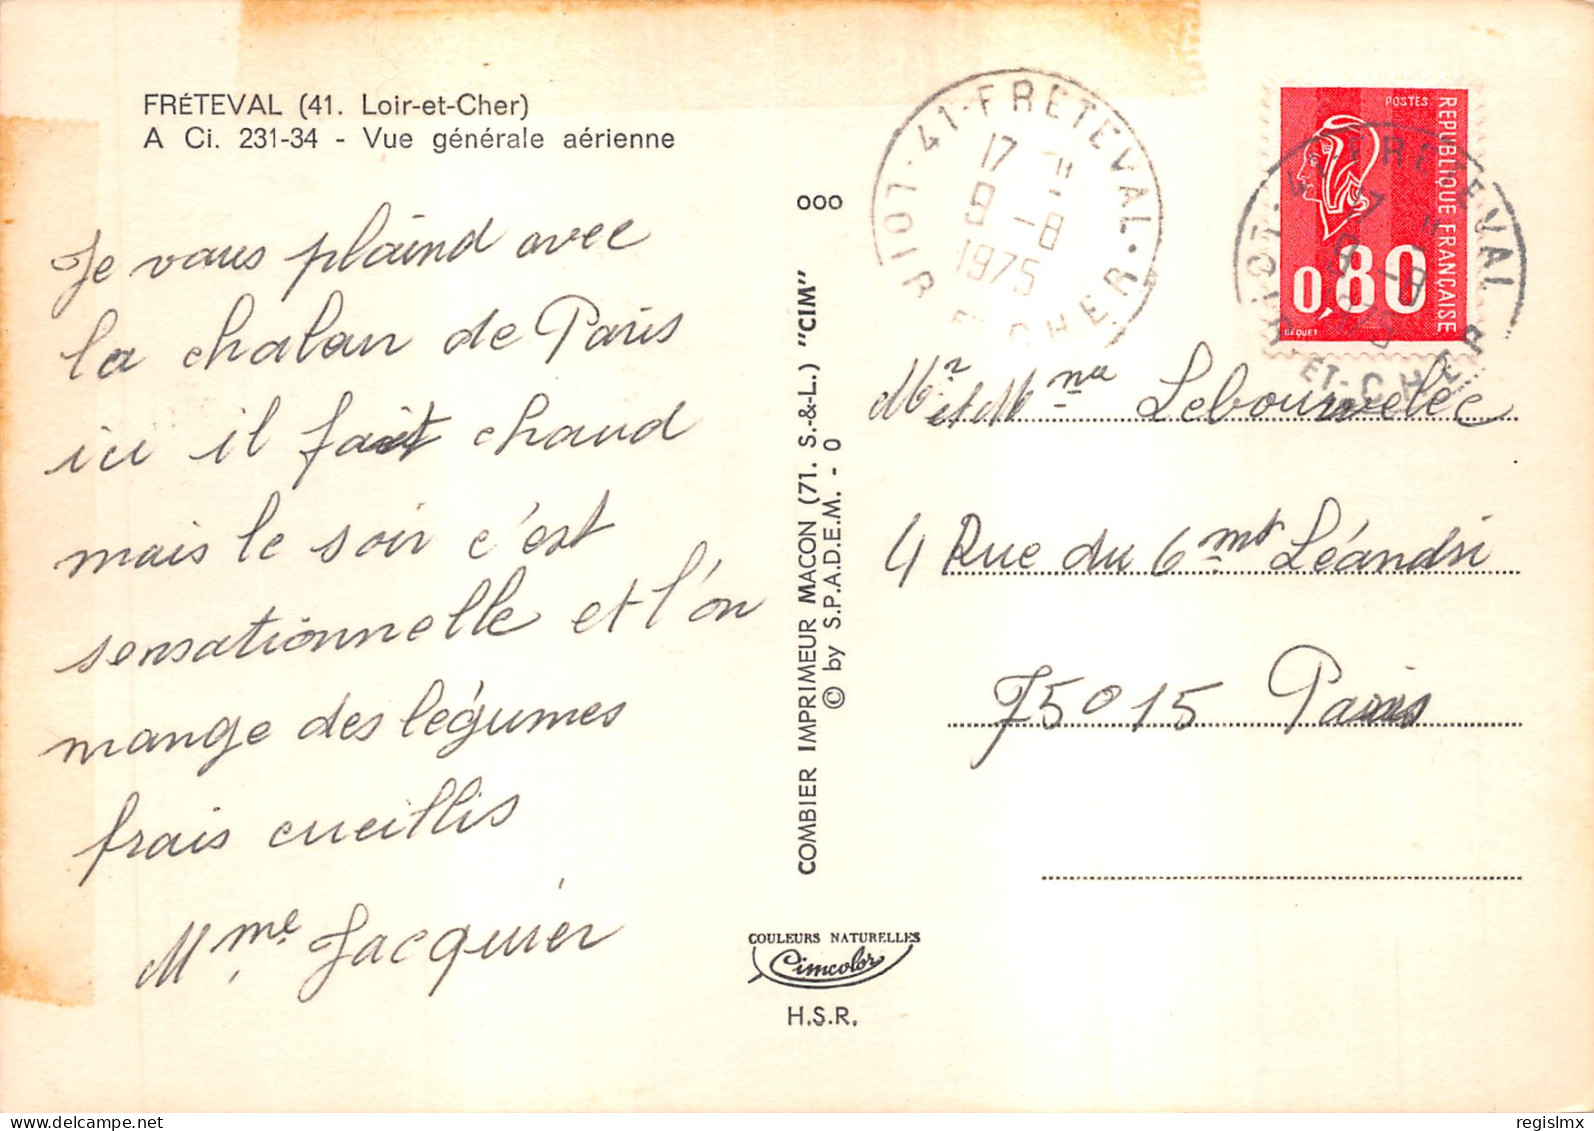 FRÉTEVAL (41. Loir-et-Cher)
A Ci. 231-34 - Vue générale aérienne
Je vous plaind avec
la chaleur de Paris
ici il fait chaud
mais le soir c'est
sensationnelle et l'on
mange des légumes
frais cueillis
Mme Jacquier
ooo
COMBIER IMPRIMEUR MACON (71. S.-&-L.) "CIM"
© by S.P.A.D.E.M. - 0
COULEURS NATURELLES
Cimcolor
H.S.R.
41-FRETEVAL
LOIR ET CHER
17 H
9-8
1975
POSTES
REPUBLIQUE FRANÇAISE
0,80
BEQUET
41 FRETEVAL
LOIR-ET-CHER
17 H
9-8
1975
Mr et Mme
4 Rue du Cmt Léandri
75015 Paris
regislmx